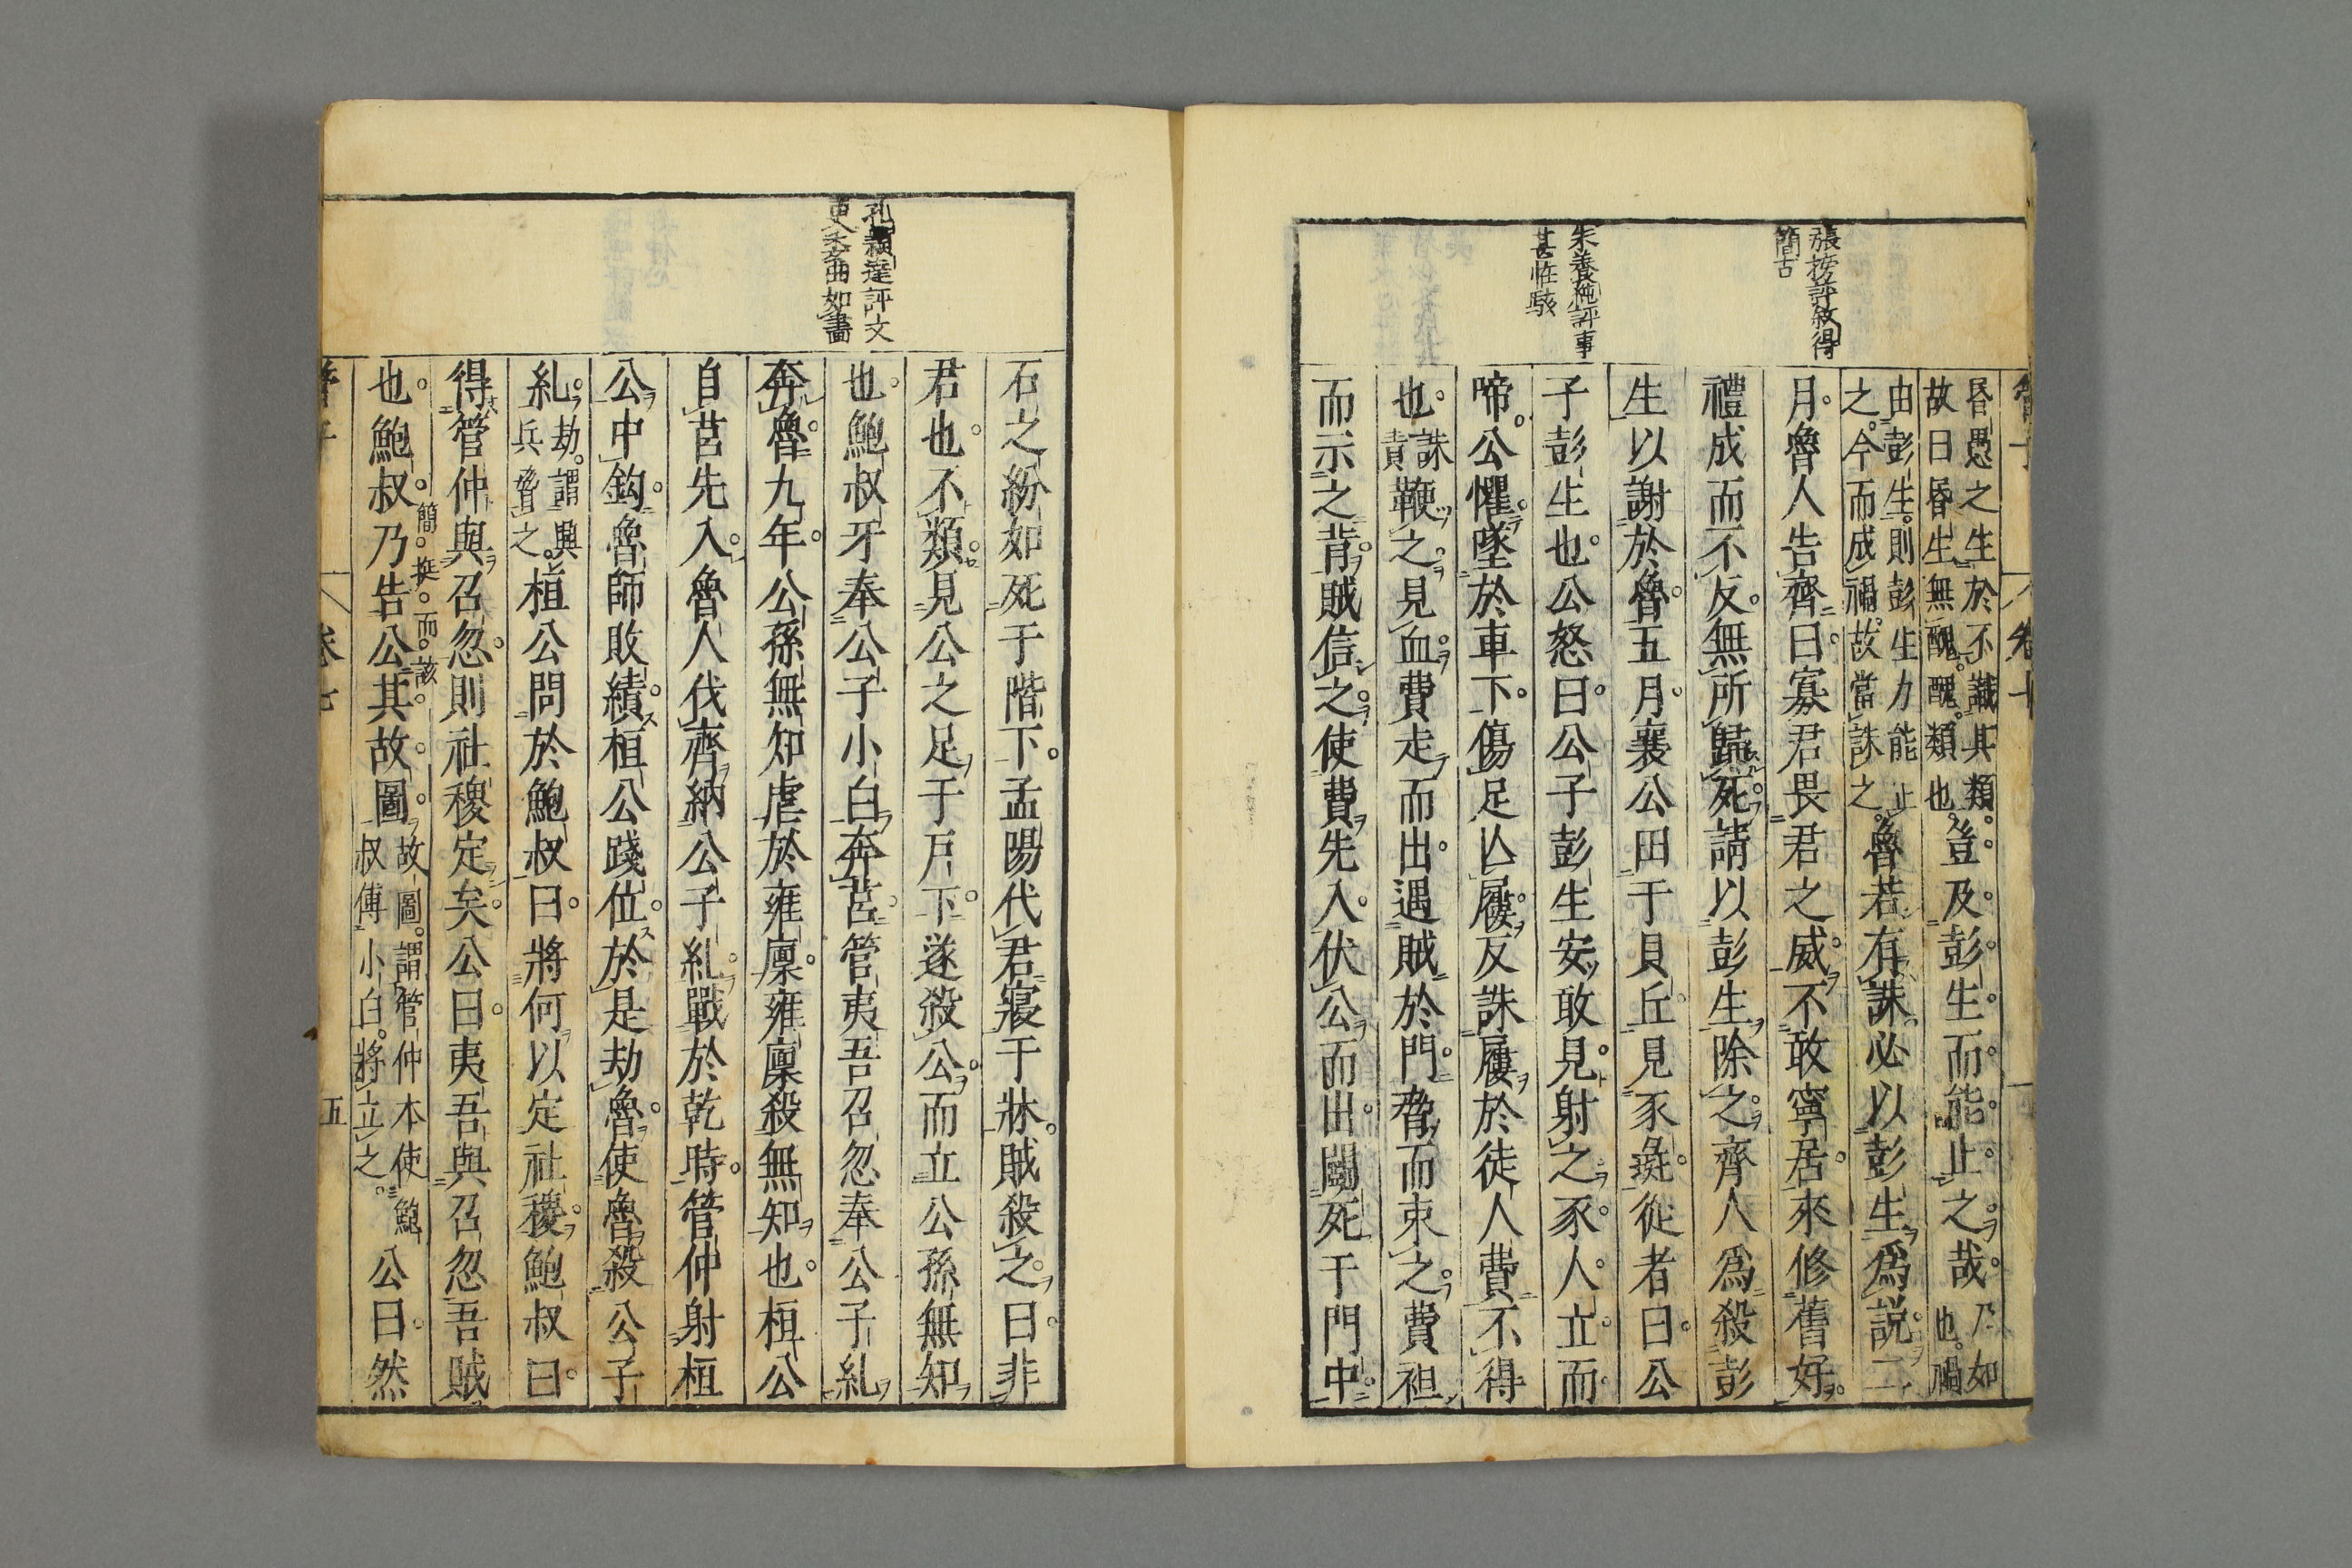 張榜評敘得
簡古
朱養純評事
甚怪駭
昏愚之生於不識其類
故曰昏生無醜醜類也
豈及彭生而能止之哉
乃如
也禍
由彭生則彭生力能止
之今而成禍故當誅之
魯若有誅必以彭生爲說二
月魯人告齊曰寡君畏君之威不敢寧居來修舊好
禮成而不反無所歸死請以彭生除之齊人爲殺彭
生以謝於魯五月襄公田于貝丘見豕彘從者曰公
子彭生也公怒曰公子彭生安敢見射之豕人立而
啼公懼墜於車下傷足亾屨反誅屨於徒人費不得
也
誅
責
鞭之見血費走而出遇賊於門脅而束之費袒
而示之背賊信之使費先入伏公而出鬬死于門中
孔穎達評文
更委曲如畫
石之紛如死于階下孟陽代君寢于牀賊殺之曰非
君也不類見公之足于戶下遂殺公而立公孫無知
也鮑叔牙奉公子小白奔莒管夷吾召忽奉公子糾
奔魯九年公孫無知虐於雍廩雍廩殺無知也桓公
自莒先入魯人伐齊納公子糾戰於乾時管仲射桓
公中鉤魯師敗績桓公踐位於是劫魯使魯殺公子
糾
劫謂興
兵脅之
桓公問於鮑叔曰將何以定社稷鮑叔曰
得管仲與召忽則社稷定矣公曰夷吾與召忽吾賊
簡挺而該
也鮑叔乃告公其故圖
故圖謂管仲本使鮑
叔傅小白將立之
公曰然
卷七
五